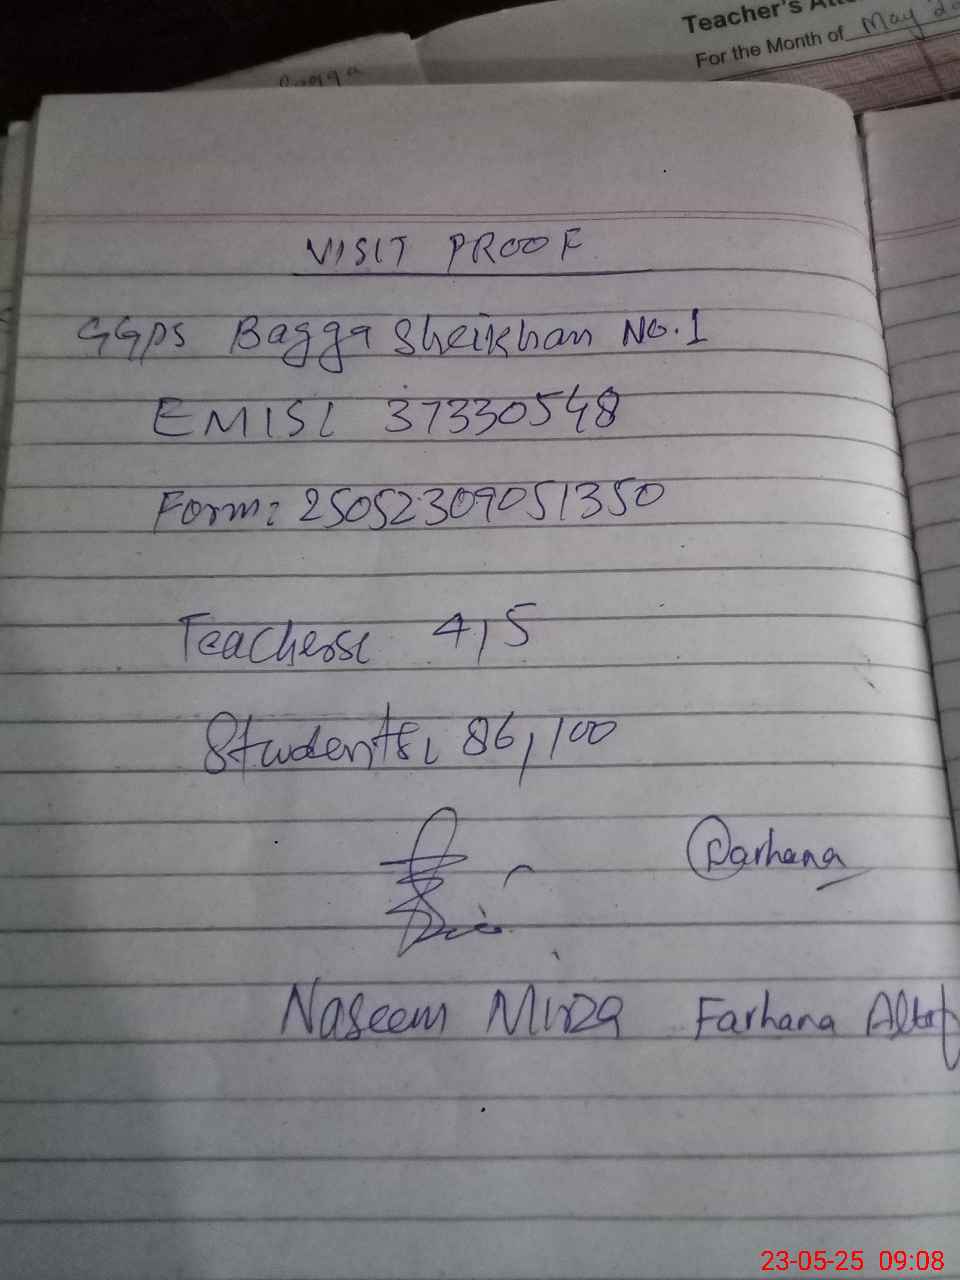 Teacher's
For the Month of May
Bagga
VISIT PROOF
GGPS Bagga Sheikhan No.1
EMIS: 37330548
Form: 25052309051350
Teachers: 4,5
Students: 86,100
Farhana
Naseem Mirza Farhana Altaf
23-05-25 09:08